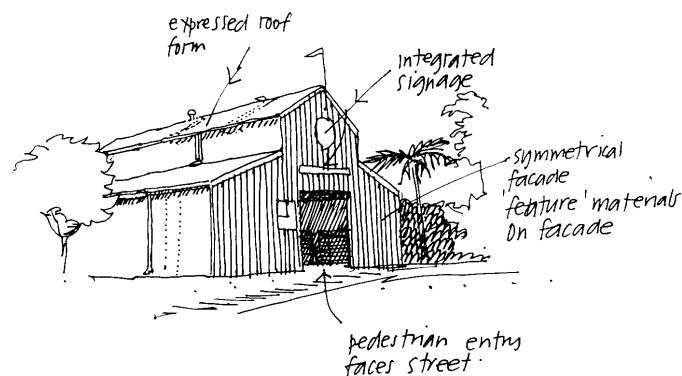 expressed roof
form
integrated
signage
symmetrical
facade
'feature' materials
on facade
pedestrian entry
faces street.